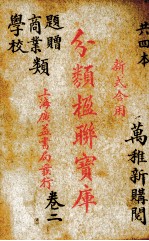 共四本
萬雅新購閱
新式合用
分類楹聯寶庫
上海廣益書局發行
題贈
商業類
學校
卷二